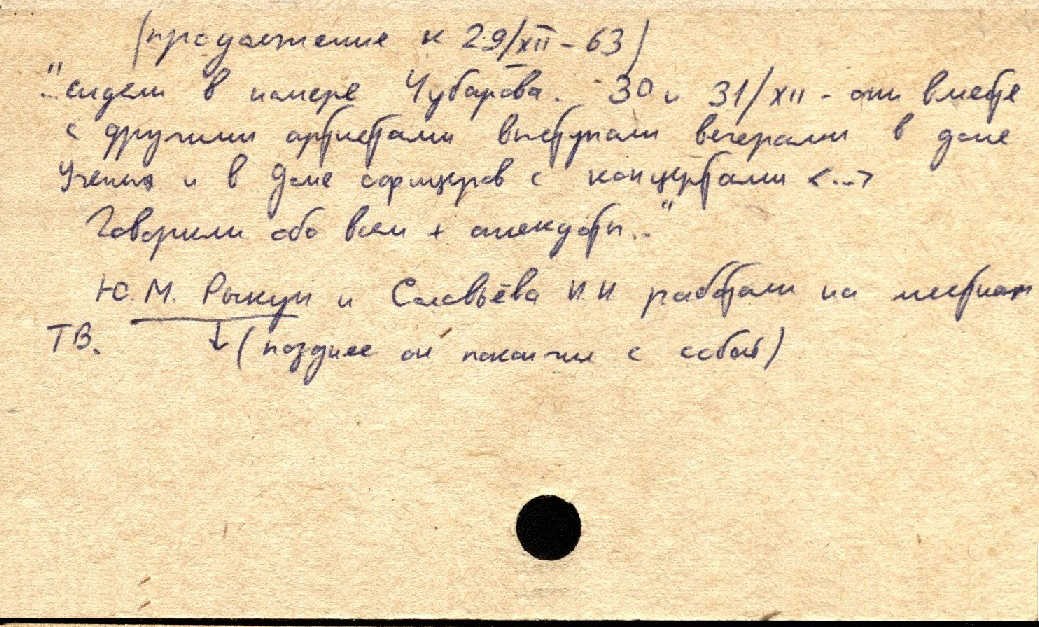 (продолжение к 29/XII-63)
"..сидели в номере Чубарова. 30 и 31/XII - они вместе
с другими артистами выступали вечерами в доме
Учёных и в Доме офицеров с концертами <...>
Говорили обо всем + анекдоты.."
Ю.М. Рыкун и Соловьёва И.И работали на местном
ТВ. ↓ (позднее он покончил с собой)